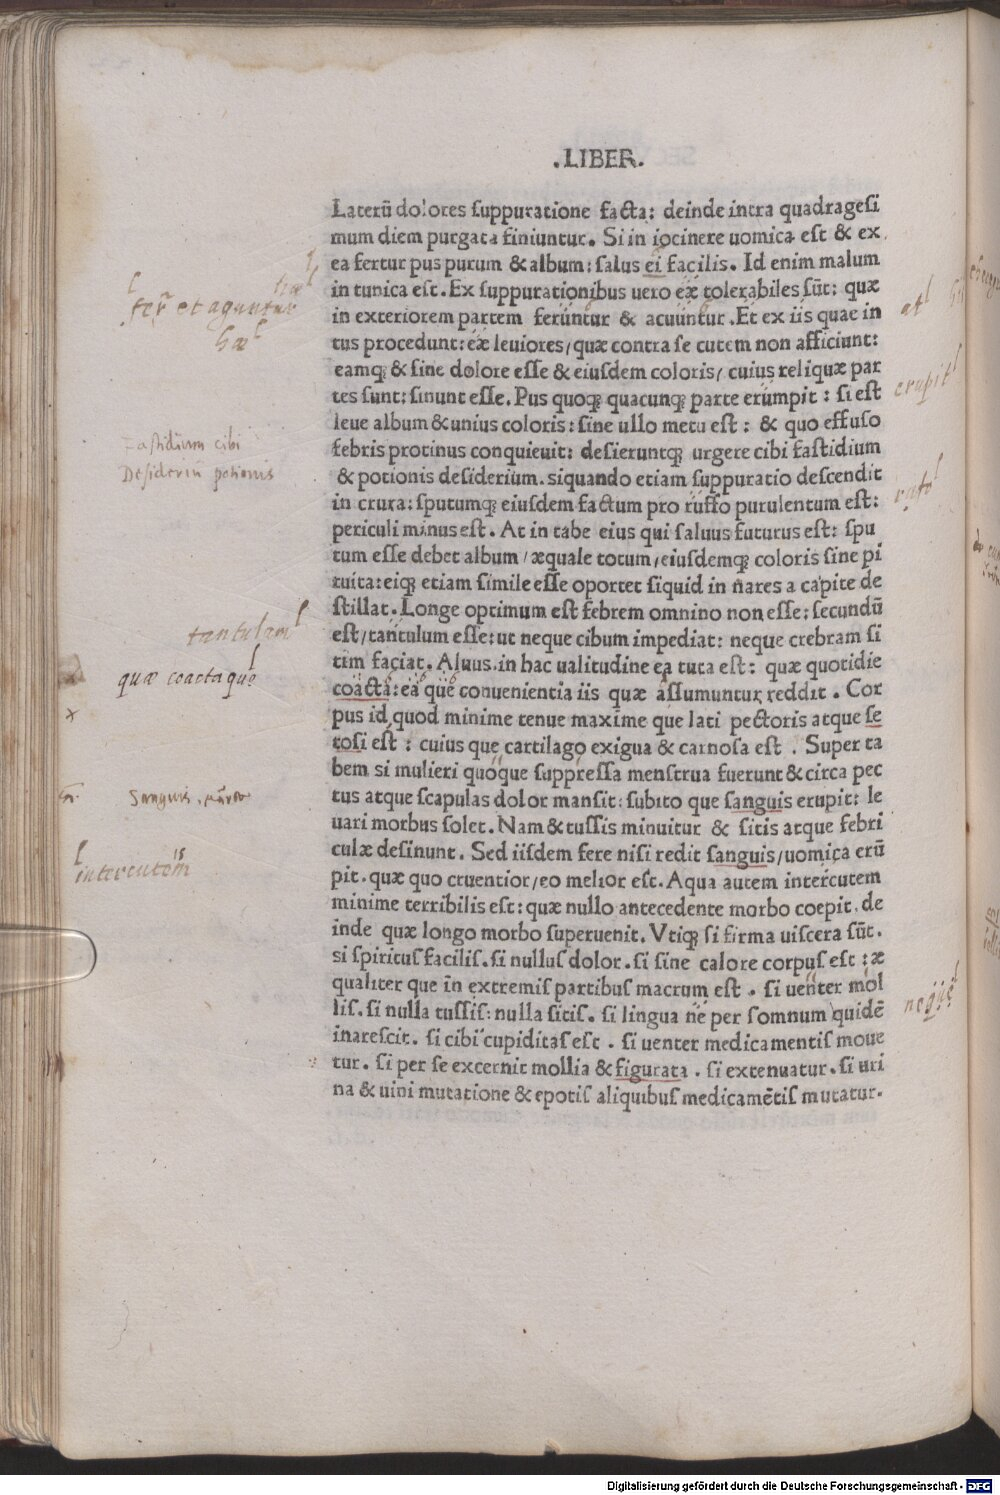 .LIBER.
Laterū dolores suppuratione facta: deinde intra quadragesi
mum diem purgata finiuntur. Si in iocinere uomica est & ex
ea fertur pus purum & album: salus ei facilis. Id enim malum
in tunica est. Ex suppurationibus uero eæ tolerabiles sūt: quæ
in exteriorem partem feruntur & acuuntur. Et ex iis quae in
tus procedunt: eæ leuiores/quæ contra se cutem non afficiunt:
eamq; & sine dolore esse & eiusdem coloris/ cuius reliquæ par
tes sunt: sinunt esse. Pus quoq; quacunq; parte erumpit: si est
leue album & unius coloris: sine ullo metu est: & quo effuso
febris protinus conquieuit: desieruntq; urgere cibi fastidium
& potionis desiderium. siquando etiam suppuratio descendit
in crura: sputumq; eiusdem factum pro ruffo purulentum est:
periculi minus est. At in tabe eius qui saluus futurus est: spu
tum esse debet album/æquale totum/eiusdemq; coloris sine pi
tuita: eiq; etiam simile esse oportet siquid in nares a capite de
stillat. Longe optimum est febrem omnino non esse: secundū
est/tantulum esse: ut neque cibum impediat: neque crebram si
tim faciat. Aluus in hac ualitudine ea tuta est: quæ quotidie
coacta: ea que conuenientia iis quæ assumuntur reddit. Cor
pus id quod minime tenue maxime que lati pectoris atque se
tosi est: cuius que cartilago exigua & carnosa est. Super ta
bem si mulieri quoque suppressa menstrua fuerunt & circa pec
tus atque scapulas dolor mansit: subito que sanguis erupit: le
uari morbus solet. Nam & tussis minuitur & sitis atque febri
culæ desinunt. Sed iisdem fere nisi redit sanguis/uomica erū
pit. quæ quo cruentior/eo melior est. Aqua autem intercutem
minime terribilis est: quæ nullo antecedente morbo coepit. de
inde quæ longo morbo superuenit. Vtiq; si firma uiscera sūt.
si spiritus facilis. si nullus dolor. si sine calore corpus est: æ
qualiter que in extremis partibus macrum est. si uenter mol
lis. si nulla tussis: nulla sitis. si lingua ne per somnum quidē
inarescit. si cibi cupiditas est. si uenter medicamentis moue
tur. si per se excernit mollia & figurata. si extenuatur. si uri
na & uini mutatione & epotis aliquibus medicamētis mutatur.
hæ
fer̃ et aguntur
hæ
Fastidium cibi
Desideriū potionis
tantulam
quæ coacta que
Sanguis
intercutem
is
at
erupit
Digitalisierung gefördert durch die Deutsche Forschungsgemeinschaft - DFG